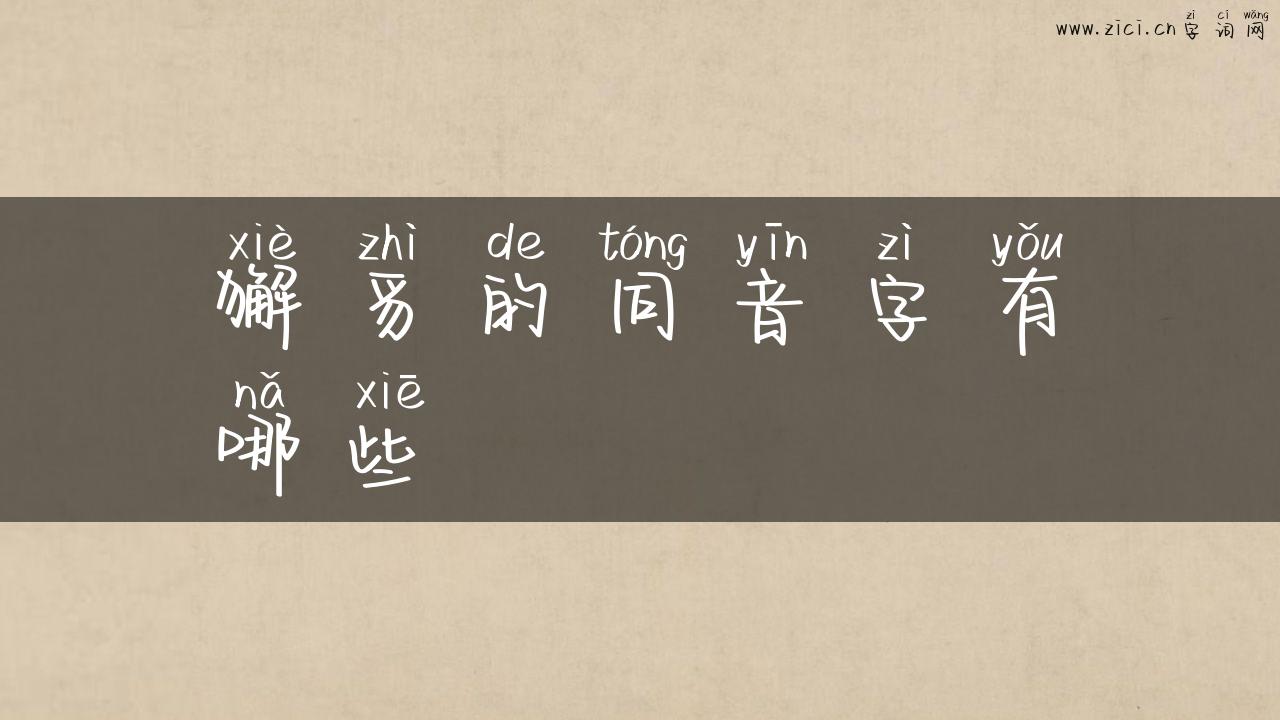 www.zici.cn 字词网
zì cí wǎng
xiè zhì de tóng yīn zì yǒu
獬豸的同音字有
nǎ xiē
哪些